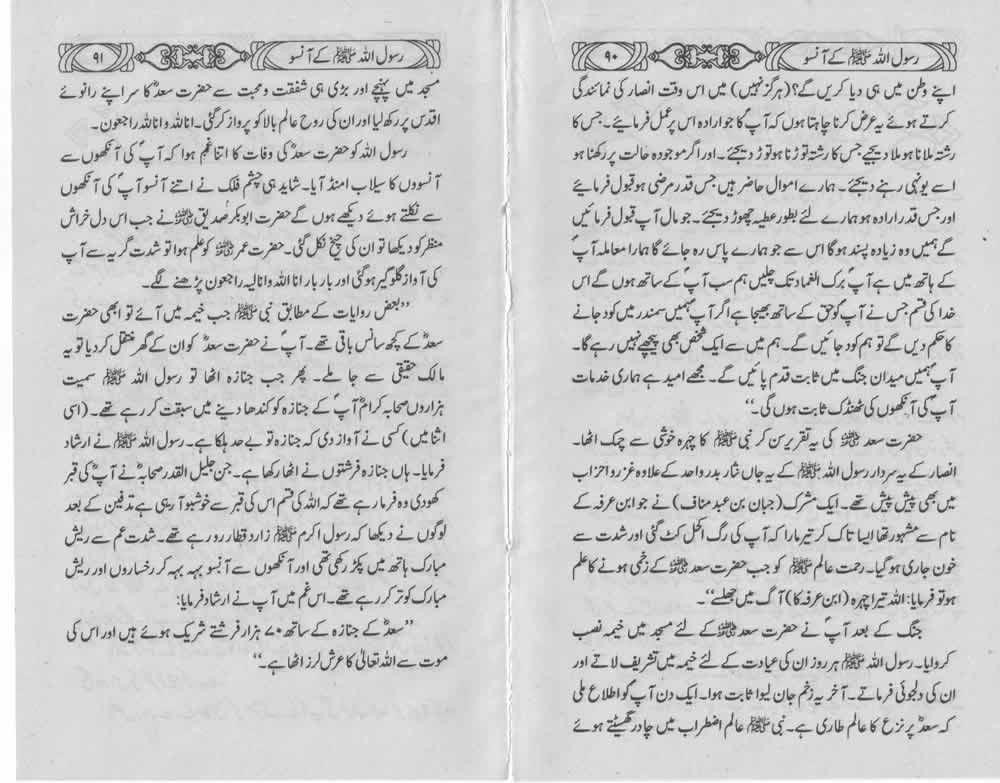 رسول اللہ ﷺ کے آنسو
۹۰
اپنے وطن میں ہی دیا کریں گے؟ (ہرگز نہیں) میں اس وقت انصار کی نمائندگی
کرتے ہوئے یہ عرض کرنا چاہتا ہوں کہ آپؐ کا جو ارادہ اس پر عمل فرمایئے۔ جس کا
رشتہ ملانا ہو ملا دیجیے جس کا رشتہ توڑنا ہو توڑ دیجئے۔ اور اگر موجودہ حالت پر رکھنا ہو
اسے یونہی رہنے دیجئے۔ ہمارے اموال حاضر ہیں جس قدر مرضی ہو قبول فرمایئے
اور جس قدر ارادہ ہو ہمارے لئے بطور عطیہ چھوڑ دیجئے۔ جو مال آپ قبول فرمائیں
گے ہمیں وہ زیادہ پسند ہوگا اس سے جو ہمارے پاس رہ جائے گا ہمارا معاملہ آپؐ
کے ہاتھ میں ہے آپؐ برک الغماد تک چلیں ہم سب آپؐ کے ساتھ ہوں گے اس
خدا کی قسم جس نے آپؐ کو حق کے ساتھ بھیجا ہے اگر آپؐ ہمیں سمندر میں کود جانے
کا حکم دیں گے تو ہم کود جائیں گے۔ ہم میں سے ایک شخص بھی پیچھے نہیں رہے گا۔
آپؐ ہمیں میدان جنگ میں ثابت قدم پائیں گے۔ مجھے امید ہے ہماری خدمات
آپؐ کی آنکھوں کی ٹھنڈک ثابت ہوں گی۔‘‘
حضرت سعد ؓ کی یہ تقریر سن کر نبی ﷺ کا چہرہ خوشی سے چمک اٹھا۔
انصار کے یہ سردار رسول اللہ ﷺ کے یہ جاں نثار بدر و احد کے علاوہ غزوہ احزاب
میں بھی پیش پیش تھے۔ ایک مشرک (جبان بن عبد مناف) نے جو ابن عرفہ کے
نام سے مشہور تھا ایسا تاک کر تیر مارا کہ آپ کی رگ اکحل کٹ گئی اور شدت سے
خون جاری ہو گیا۔ رحمت عالم ﷺ کو جب حضرت سعد ؓ کے زخمی ہونے کا علم
ہو تو فرمایا: اللہ تیرا چہرہ (ابن عرفہ کا) آگ میں جھلسے‘‘۔
جنگ کے بعد آپؐ نے حضرت سعد ؓ کے لئے مسجد میں خیمہ نصب
کروایا۔ رسول اللہ ﷺ ہر روز ان کی عیادت کے لئے خیمہ میں تشریف لاتے اور
ان کی دلجوئی فرماتے۔ آخر یہ زخم جان لیوا ثابت ہوا۔ ایک دن آپؐ کو اطلاع ملی
کہ سعدؓ پر نزع کا عالم طاری ہے۔ نبی ﷺ عالم اضطراب میں چادر گھسیٹتے ہوئے
رسول اللہ ﷺ کے آنسو
۹۱
مسجد میں پہنچے اور بڑی ہی شفقت و محبت سے حضرت سعدؓ کا سر اپنے زانوئے
اقدس پر رکھ لیا اور ان کی روح عالم بالا کو پرواز کر گئی۔ انا للہ وانا للہ راجعون۔
رسول اللہ کو حضرت سعدؓ کی وفات کا اتنا غم ہوا کہ آپؐ کی آنکھوں سے
آنسووں کا سیلاب امنڈ آیا۔ شاید ہی چشم فلک نے اتنے آنسو آپؐ کی آنکھوں
سے نکلتے ہوئے دیکھے ہوں گے حضرت ابوبکر صدیق ؓ نے جب اس دل خراش
منظر کو دیکھا تو ان کی چیخ نکل گئی۔ حضرت عمر ؓ کو علم ہوا تو شدت گریہ سے آپ
کی آواز گلوگیر ہو گئی اور بار بار انا اللہ وانا الیہ راجعون پڑھنے لگے۔
’’بعض روایات کے مطابق نبیؐ جب خیمہ میں آئے تو ابھی حضرت
سعدؓ کے کچھ سانس باقی تھے۔ آپؐ نے حضرت سعدؓ کو ان کے گھر منتقل کر دیا تو یہ
مالک حقیقی سے جا ملے۔ پھر جب جنازہ اٹھا تو رسول اللہ ﷺ سمیت
ہزاروں صحابہ کرامؓ آپؓ کے جنازہ کو کندھا دینے میں سبقت کر رہے تھے۔ (اسی
اثنا میں) کسی نے آواز دی کہ جنازہ تو بے حد ہلکا ہے۔ رسول اللہ ﷺ نے ارشاد
فرمایا۔ ہاں جنازہ فرشتوں نے اٹھا رکھا ہے۔ جن جلیل القدر صحابہؓ نے آپؓ کی قبر
کھودی وہ فرما رہے تھے کہ اللہ کی قسم اس کی قبر سے خوشبو آ رہی ہے تدفین کے بعد
لوگوں نے دیکھا کہ رسول اکرم ﷺ زار و قطار رو رہے تھے۔ شدت غم سے ریش
مبارک ہاتھ میں پکڑ رکھی تھی اور آنکھوں سے آنسو بہہ بہہ کر رخساروں اور ریش
مبارک کو تر کر رہے تھے۔ اس غم میں آپ نے ارشاد فرمایا:
’’سعدؓ کے جنازہ کے ساتھ ۷۰ ہزار فرشتے شریک ہوئے ہیں اور اس کی
موت سے اللہ تعالیٰ کا عرش لرز اٹھا ہے۔‘‘